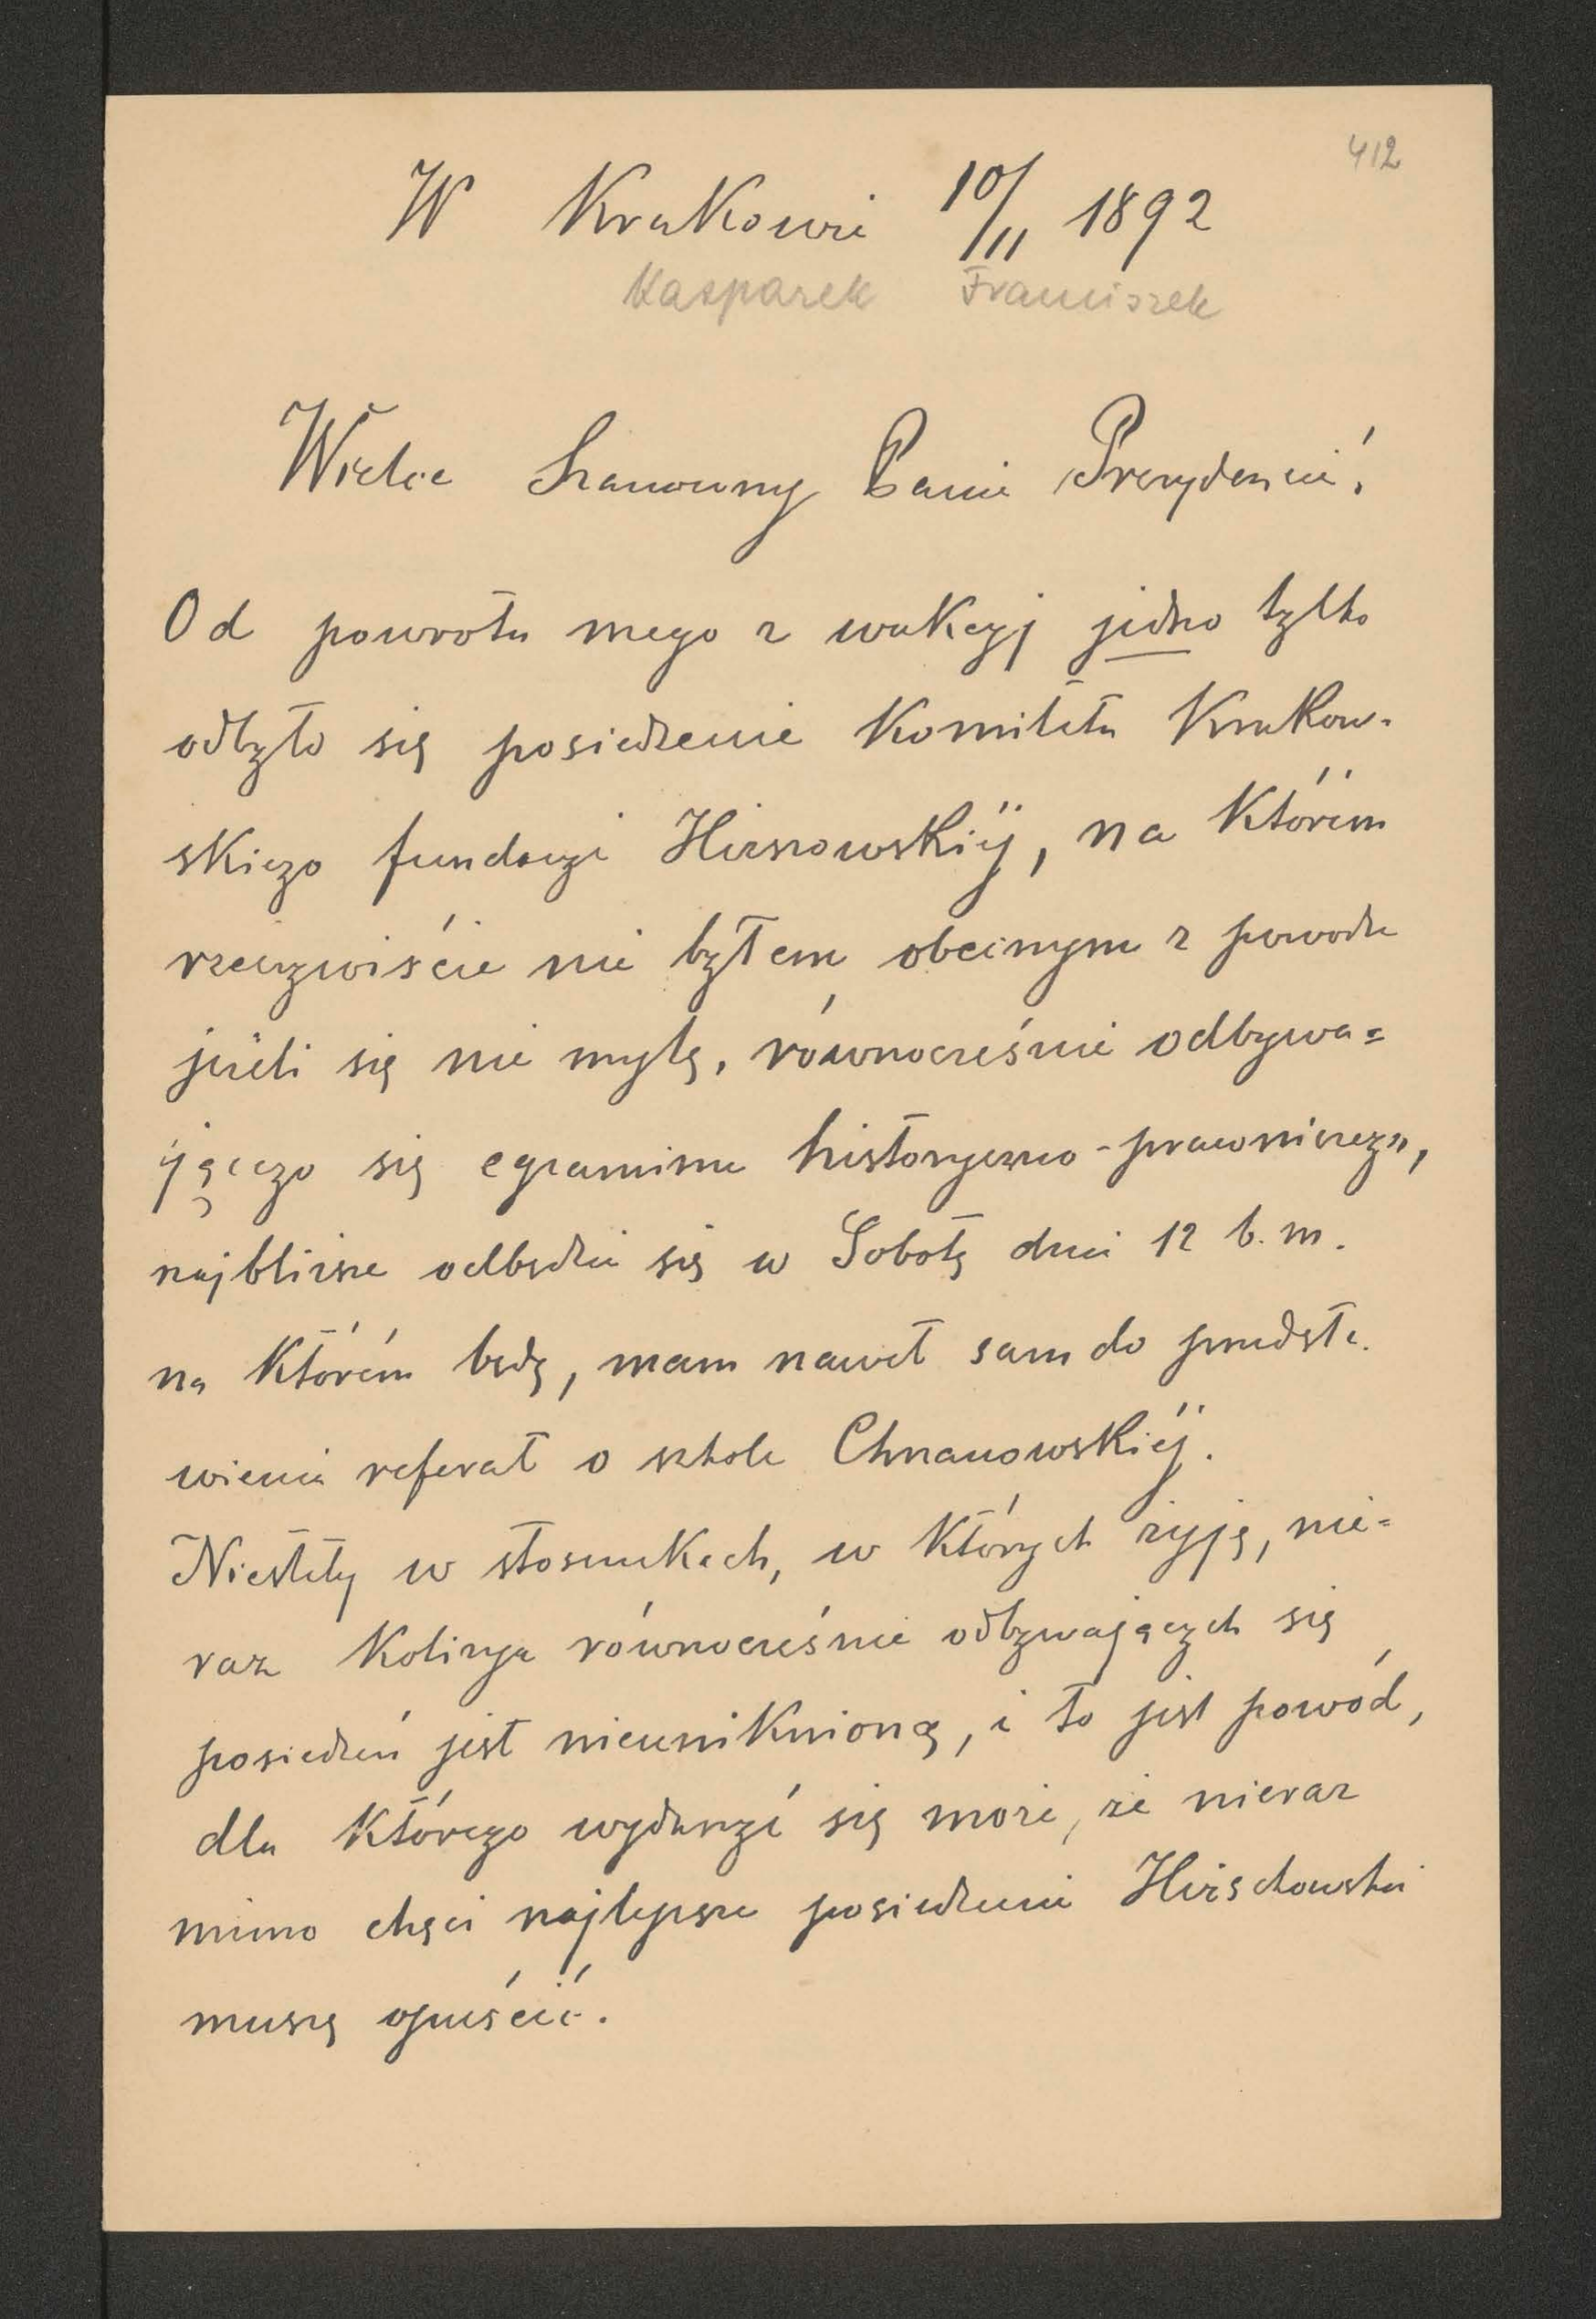 412
W Krakowie 10/11 1892
Kasparek Franciszek
Wielce Szanowny Panie Prezydencie!
Od powrotu mego z wakacyj jedno tylko
odbyło się posiedzenie Komitetu Krakow-
skiego fundacyi Hirszowskiéj, na którém
rzeczywiście nie byłem obecnym z powodu
jeżeli się nie mylę, równocześnie odbywa=
jącego się egzaminu historyczno-prawniczego,
najbliższe odbędzie się w Sobotę dnia 12 b. m.
na którém będę, mam nawet sam do przedsta-
wienia referat o szkole Chrzanowskiéj.
Niestety w stosunkach, w których żyję, nie=
raz kolizya równocześnie odbywających się
posiedzeń jest nieuniknioną, i to jest powód,
dla którego wydarzyć się może, że nieraz
mimo chęci najlepsze posiedzenie Hirschowskie
muszę opuścić.